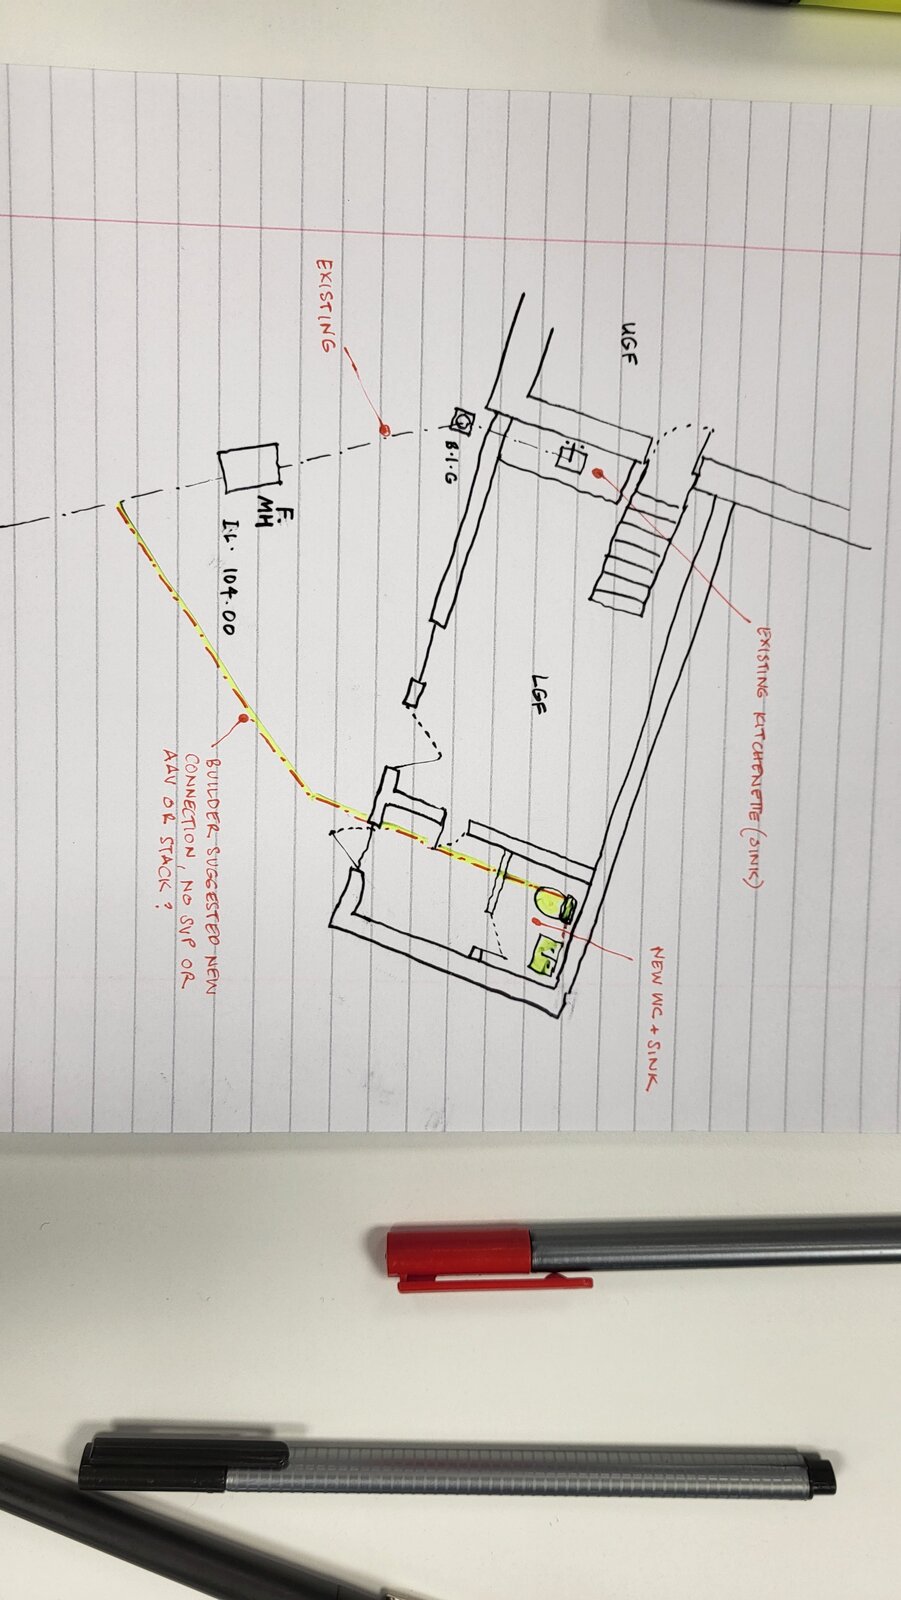 UGF
EXISTING KITCHENETTE (SINK)
EXISTING
B.I.G
LGF
F.
MH
I.L. 104.00
NEW WC + SINK
BUILDER SUGGESTED NEW
CONNECTION, NO SVP OR
AAV OR STACK?